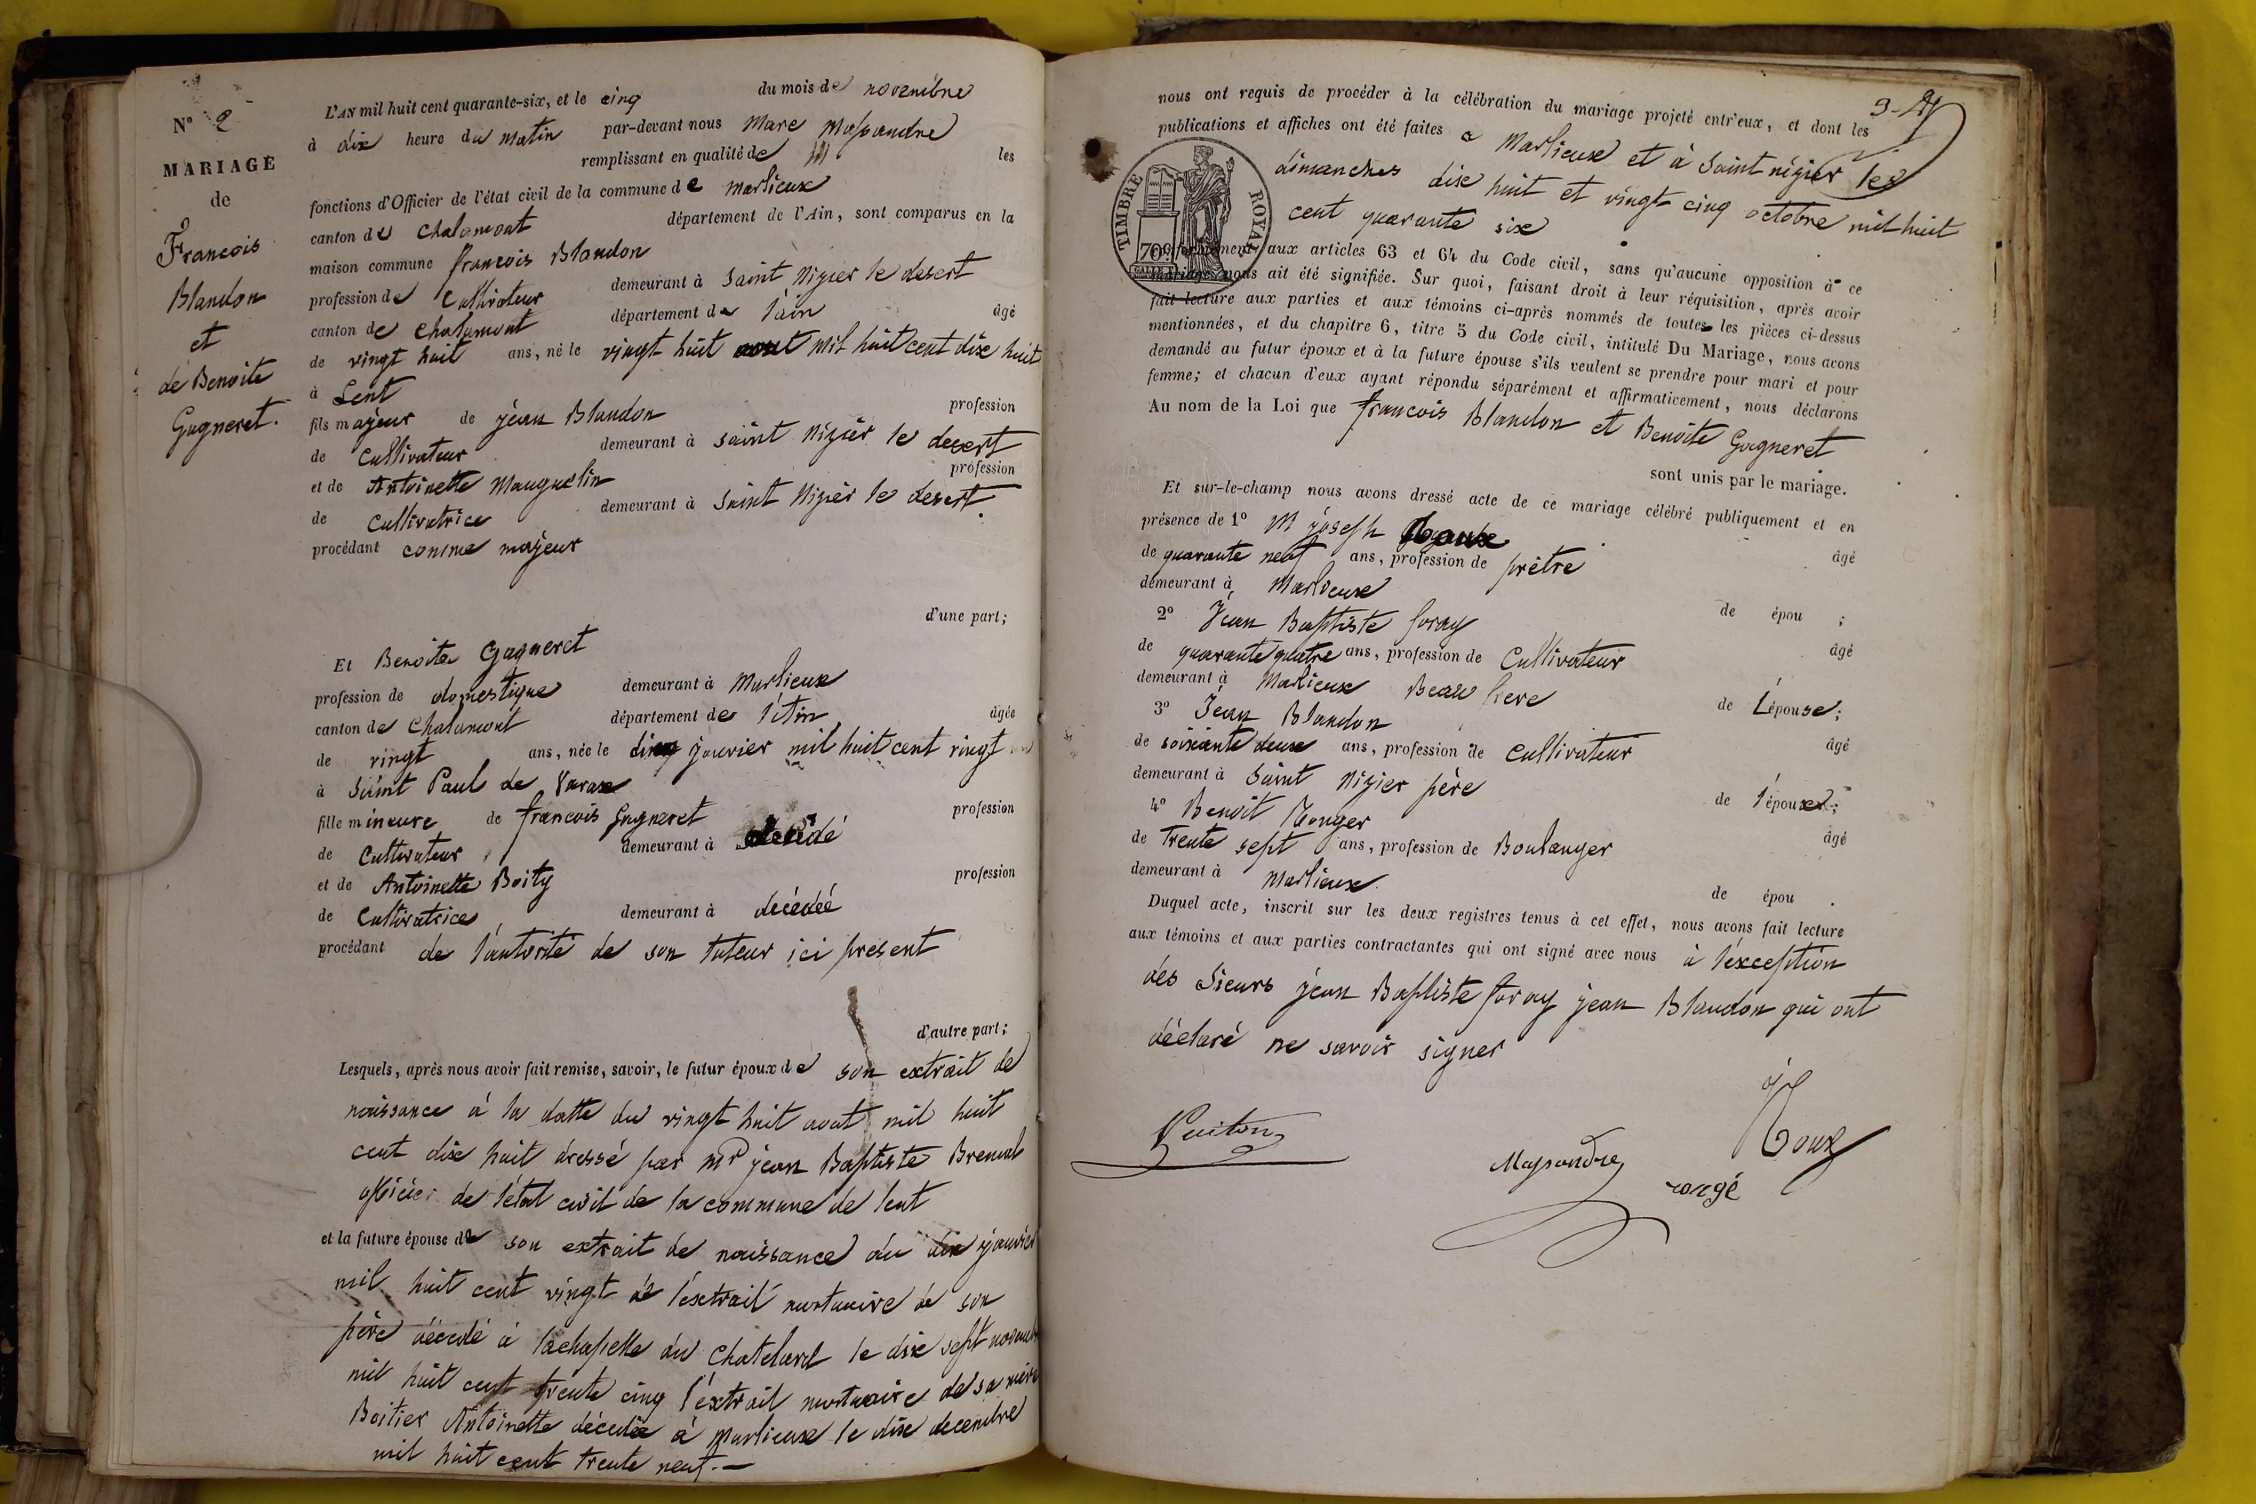 N° 2
MARIAGE
de
François
Blandon
et
de Benoite
Gagneret.
L'AN mil huit cent quarante-six, et le cinq du mois de novembre
à dix heure du matin par-devant nous Marc Mapandre
remplissant en qualité de M les
fonctions d'Officier de l'état civil de la commune de marlieux
canton de chalamont département de l'Ain, sont comparus en la
maison commune françois Blandon
profession de Cultivateur demeurant à Saint Nizier le desert
canton de chalamont département de l'ain âgé
de vingt huit ans, né le vingt huit aout mil huit cent dix huit
à Lent
fils majeur de jéan Blandon profession
de Cultivateur demeurant à Saint Nizier le desert
et de Antoinette Mauguelin profession
de Cultivatrice demeurant à Saint Nizier le desert.
procédant comme majeur
d'une part;
Et Benoite Gagneret
profession de domestique demeurant à Marlieux
canton de Chalamont département de l'Ain âgée
de vingt ans, née le janvier mil huit cent vingt
à Saint Paul de Varax
fille mineure de françois Gagneret profession
de Cultivateur demeurant à décédé
et de Antoinette Boity profession
de Cultivatrice demeurant à décédéé
procédant de l'autorité de son tuteur ici présent
d'autre part;
Lesquels, après nous avoir fait remise, savoir, le futur époux de son extrait de
naissance à la datte du vingt huit aout mil huit
cent dix huit dressé par mr jean Baptiste
officier de l'état civil de la commune de lent
et la future épouse de son extrait de naissance du dix janvier
mil huit cent vingt de l'extrait mortuaire de son
père décédé à lachapelle du Chatelard le dix sept novembre
mil huit cent trente cinq l'extrait mortuaire de sa mère
Boitier Antoinette décédée à Marlieux le dix decembre
mil huit cent trente neuf.—
nous ont requis de procéder à la célébration du mariage projeté entr'eux, et dont les
publications et affiches ont été faites a Marlieux et à Saint nizier les
dimanches dix huit et vingt cinq octobre mil huit
cent quarante six
TIMBRE ROYAL
70c
conformément aux articles 63 et 64 du Code civil, sans qu'aucune opposition à ce
mariage nous ait été signifiée. Sur quoi, faisant droit à leur réquisition, après avoir
fait lecture aux parties et aux témoins ci-après nommés de toutes les pièces ci-dessus
mentionnées, et du chapitre 6, titre 5 du Code civil, intitulé Du Mariage, nous avons
demandé au futur époux et à la future épouse s'ils veulent se prendre pour mari et pour
femme; et chacun d'eux ayant répondu séparément et affirmativement, nous déclarons
Au nom de la Loi que françois Blandon et Benoite Gagneret
sont unis par le mariage.
Et sur-le-champ nous avons dressé acte de ce mariage célébré publiquement et en
présence de 1° M joseph Roux âgé
de quarante neuf ans, profession de prêtre
demeurant à Marlieux de épou ;
2° Jéan Baptiste foray âgé
de quarante quatre ans, profession de Cultivateur
demeurant à Marlieux Beau frere de L'épouse;
3° Jéan Blandon âgé
de soixante deux ans, profession de Cultivateur
demeurant à Saint Nizier père de l'époux;
4° Benoit Ronger âgé
de trente sept ans, profession de Boulanger
demeurant à Marlieux. de épou .
Duquel acte, inscrit sur les deux registres tenus à cet effet, nous avons fait lecture
aux témoins et aux parties contractantes qui ont signé avec nous à l'éxception
des Sieurs jéan Baptiste foray jean Blandon qui ont
déclaré ne savoir signer
Guiton
Mapandre
Roux
rongé